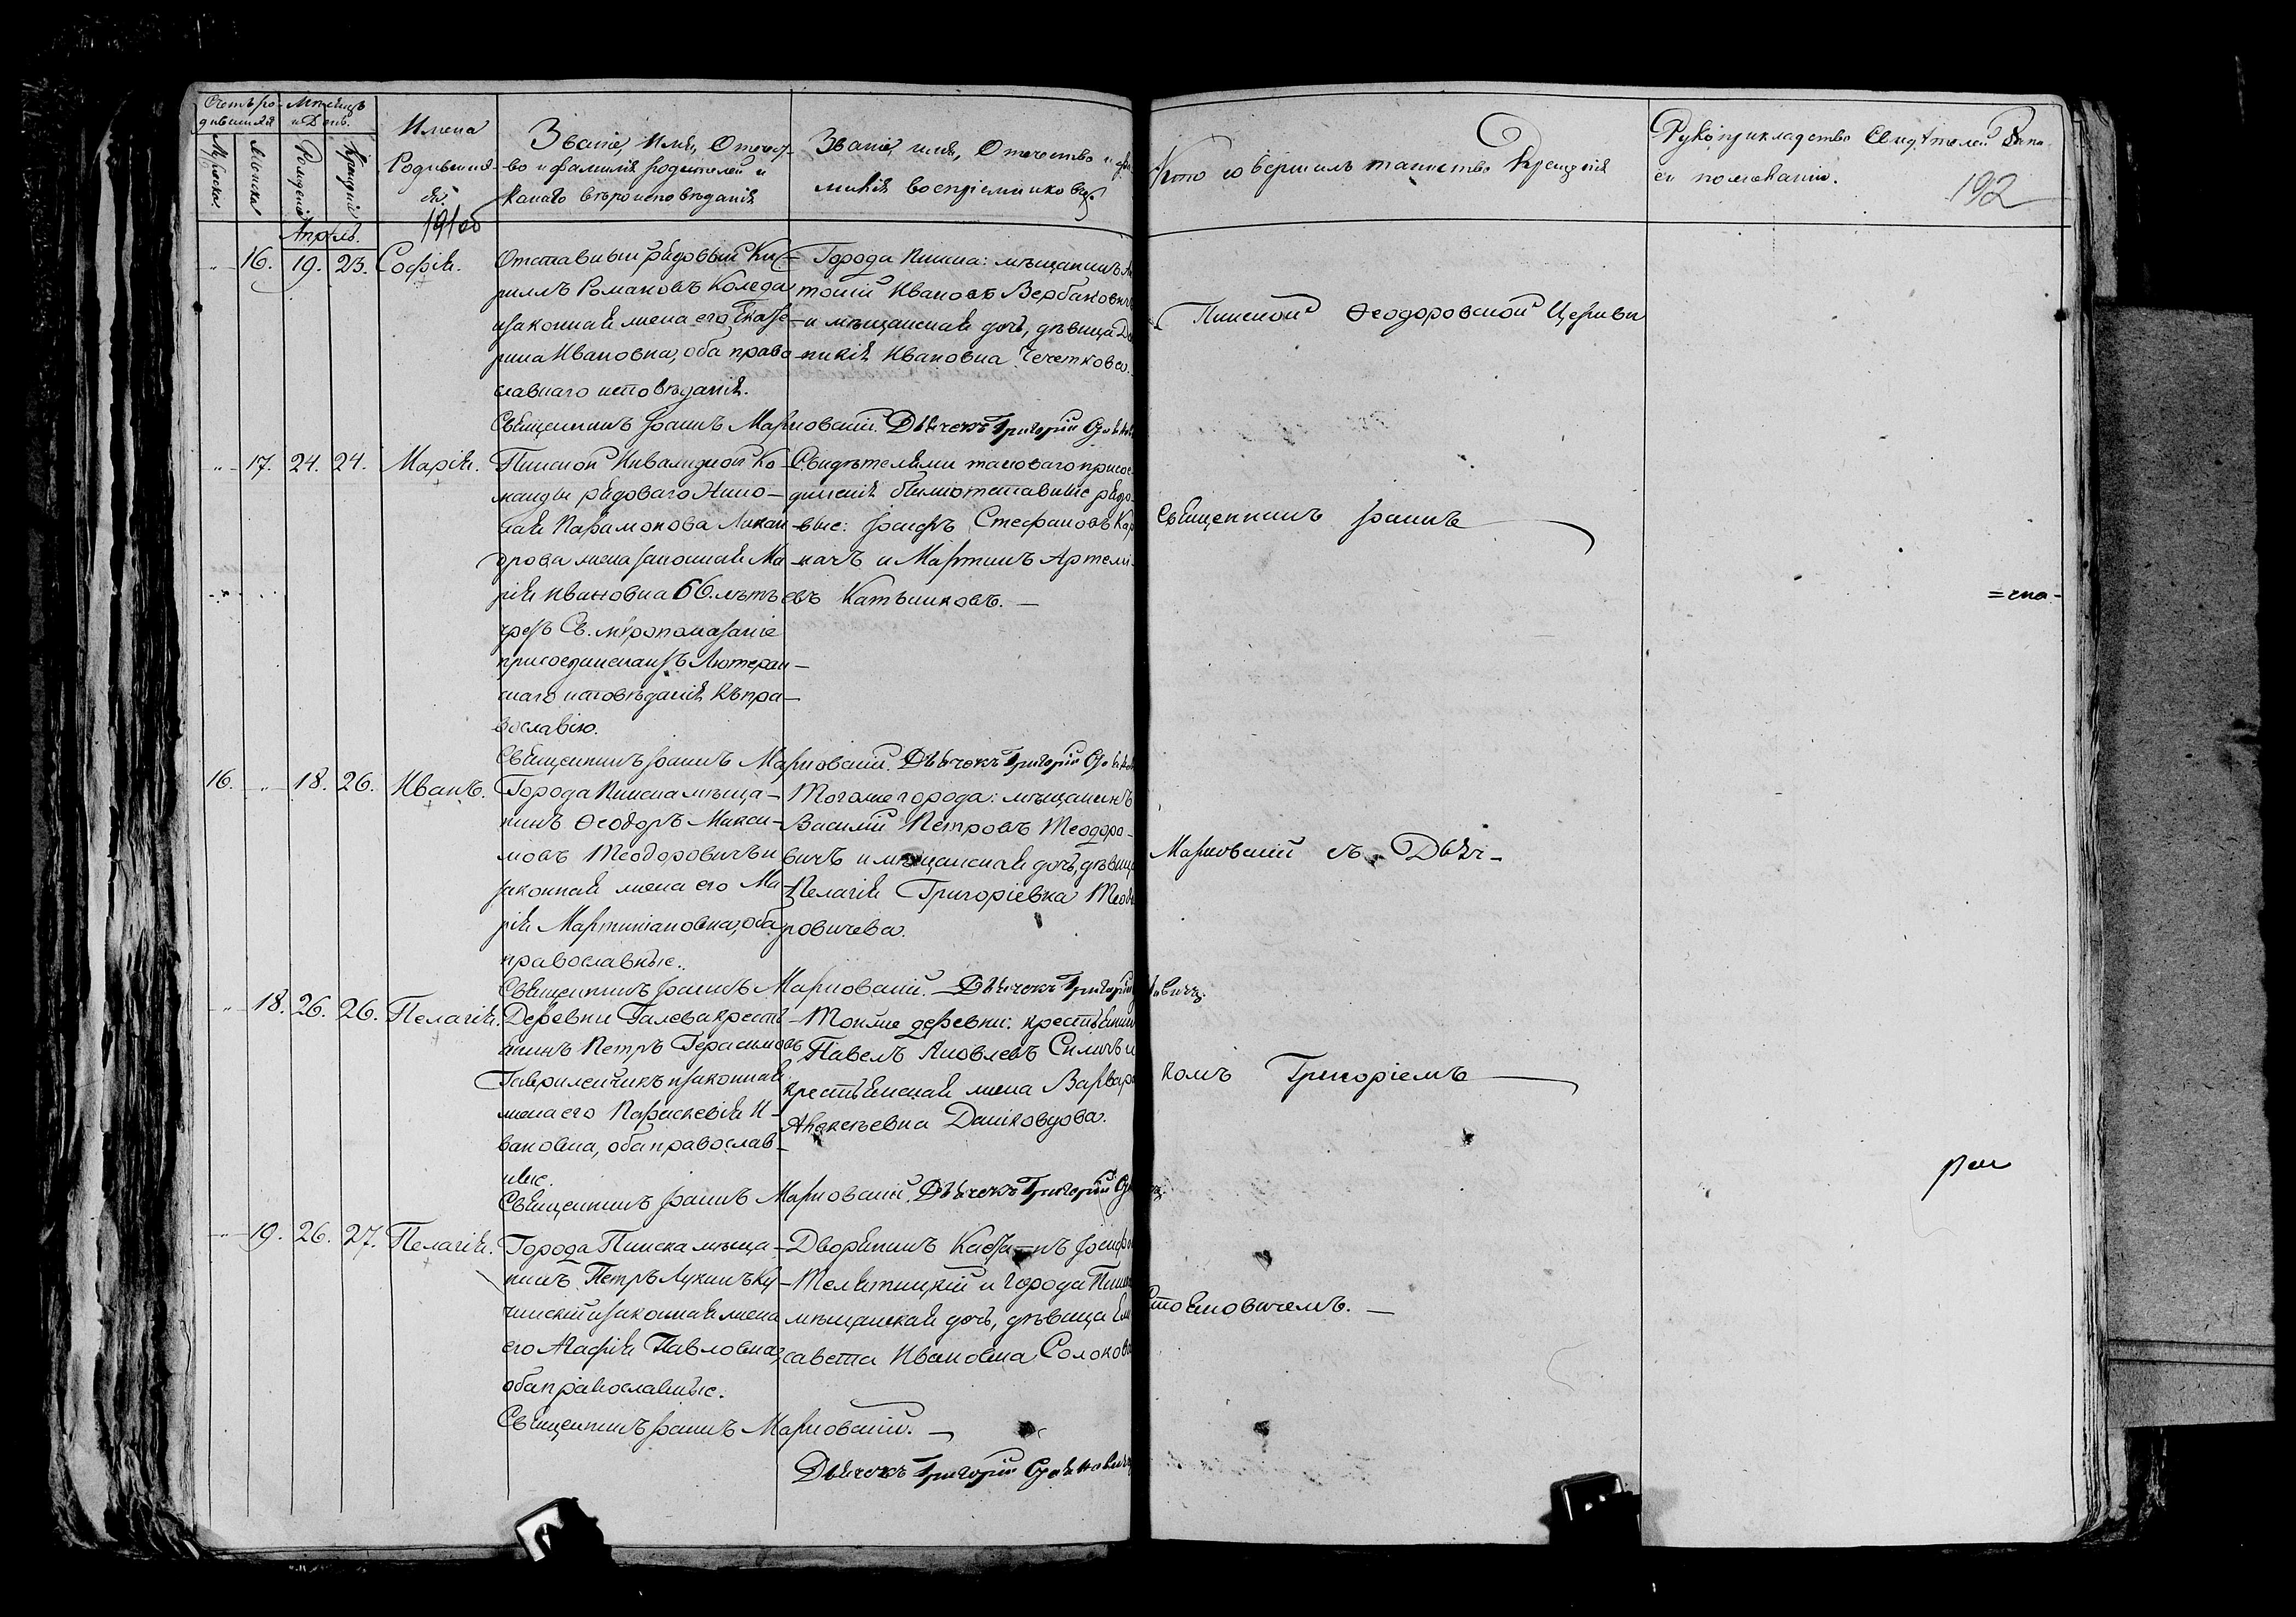 Счетъ ро-
дившихся
Мѣсяцъ
и День.
Мужеска.
Женска
Рожденія
Крещенія
Имена
Родивших-
ся.
Званіе, Имя, Отечест-
во и фамилія родителей и
какаго вѣроисповѣданія
Званіе, имя, Отечество и фа
милія воспріемниковъ.
Кто совершалъ таинство Крещенія
Рукоприкладство Свидѣтелей Запи
си по желанію.
192
191об
Апрѣль.
16. 19. 23. Софія.
Отставный рядовый Ки-
риллъ Романовъ Коледа
и законная жена его Екате-
рина Ивановна, оба право-
славнаго исповѣданія.
Города Пинска: мѣщанинъ Ан
тоній Ивановъ Вербановичъ
и мѣщанская дочь, дѣвица До
никія Ивановна Чечеткова.
Священникъ Іоаннъ Марковскій. Дьячекъ Григорій
17. 24. 24. Марія.
Пинской Инвалидной Ко-
манды рядоваго
Парамонова
жена законная Ма
рія Ивановна 66. лѣтъ
чрезъ Св. мѵропомазаніе
присоединена изъ Лютеран-
скаго исповѣданія къ пра-
вославію.
Свидѣтелями таковаго присое-
диненія были отставные рядо-
вые: Іосифъ Стефановъ Кар
качъ и Мартинъ Артемі-
евъ Катѣшковъ. —
Священникъ Іоаннъ Марковскій. Дьячекъ Григорій
16. 18. 26. Иванъ.
Города Пинска мѣща-
нинъ Ѳеодоръ Макси-
мовъ Теодоровичъ и
законная жена его Ма-
рія Мартиніановна, оба
православные.
Тогоже города: мѣщанинъ
Василій Петровъ Теодоро-
вичъ и мѣщанская дочь, дѣвица
Пелагія Григоріевна Теодо
ровичева.
Священникъ Іоаннъ Марковскій. — Дьячекъ Григорій
18. 26. 26. Пелагія.
Деревни Галева кресть-
янинъ Петръ Герасимовъ
Гаврилейчикъ и законная
жена его Параскевія И-
вановна, оба православ-
ные.
Тойже деревни: крестьянинъ
Павелъ Яковлевъ Силичъ и
крестьянская жена Варвара
Алексѣевна Данковцова.
Священникъ Іоаннъ Марковскій. Дьячекъ Григорій
19. 26. 27. Пелагія.
Города Пинска мѣща-
нинъ Петръ Лукинъ Ку-
чинскій и законная жена
его Агафія Павловна,
оба православные.
Дворянинъ Іосифъ
Телятицкій и города Пинска
мѣщанская дочь, дѣвица Ели
савета Ивановна Солокова
Священникъ Іоаннъ Марковскій. —
Дьячекъ Григорій
Пинской Ѳеодоровской Церкви
Священникъ Іоаннъ
Марковскій съ Дьяч-
комъ Григоріемъ
Стояновичемъ. —